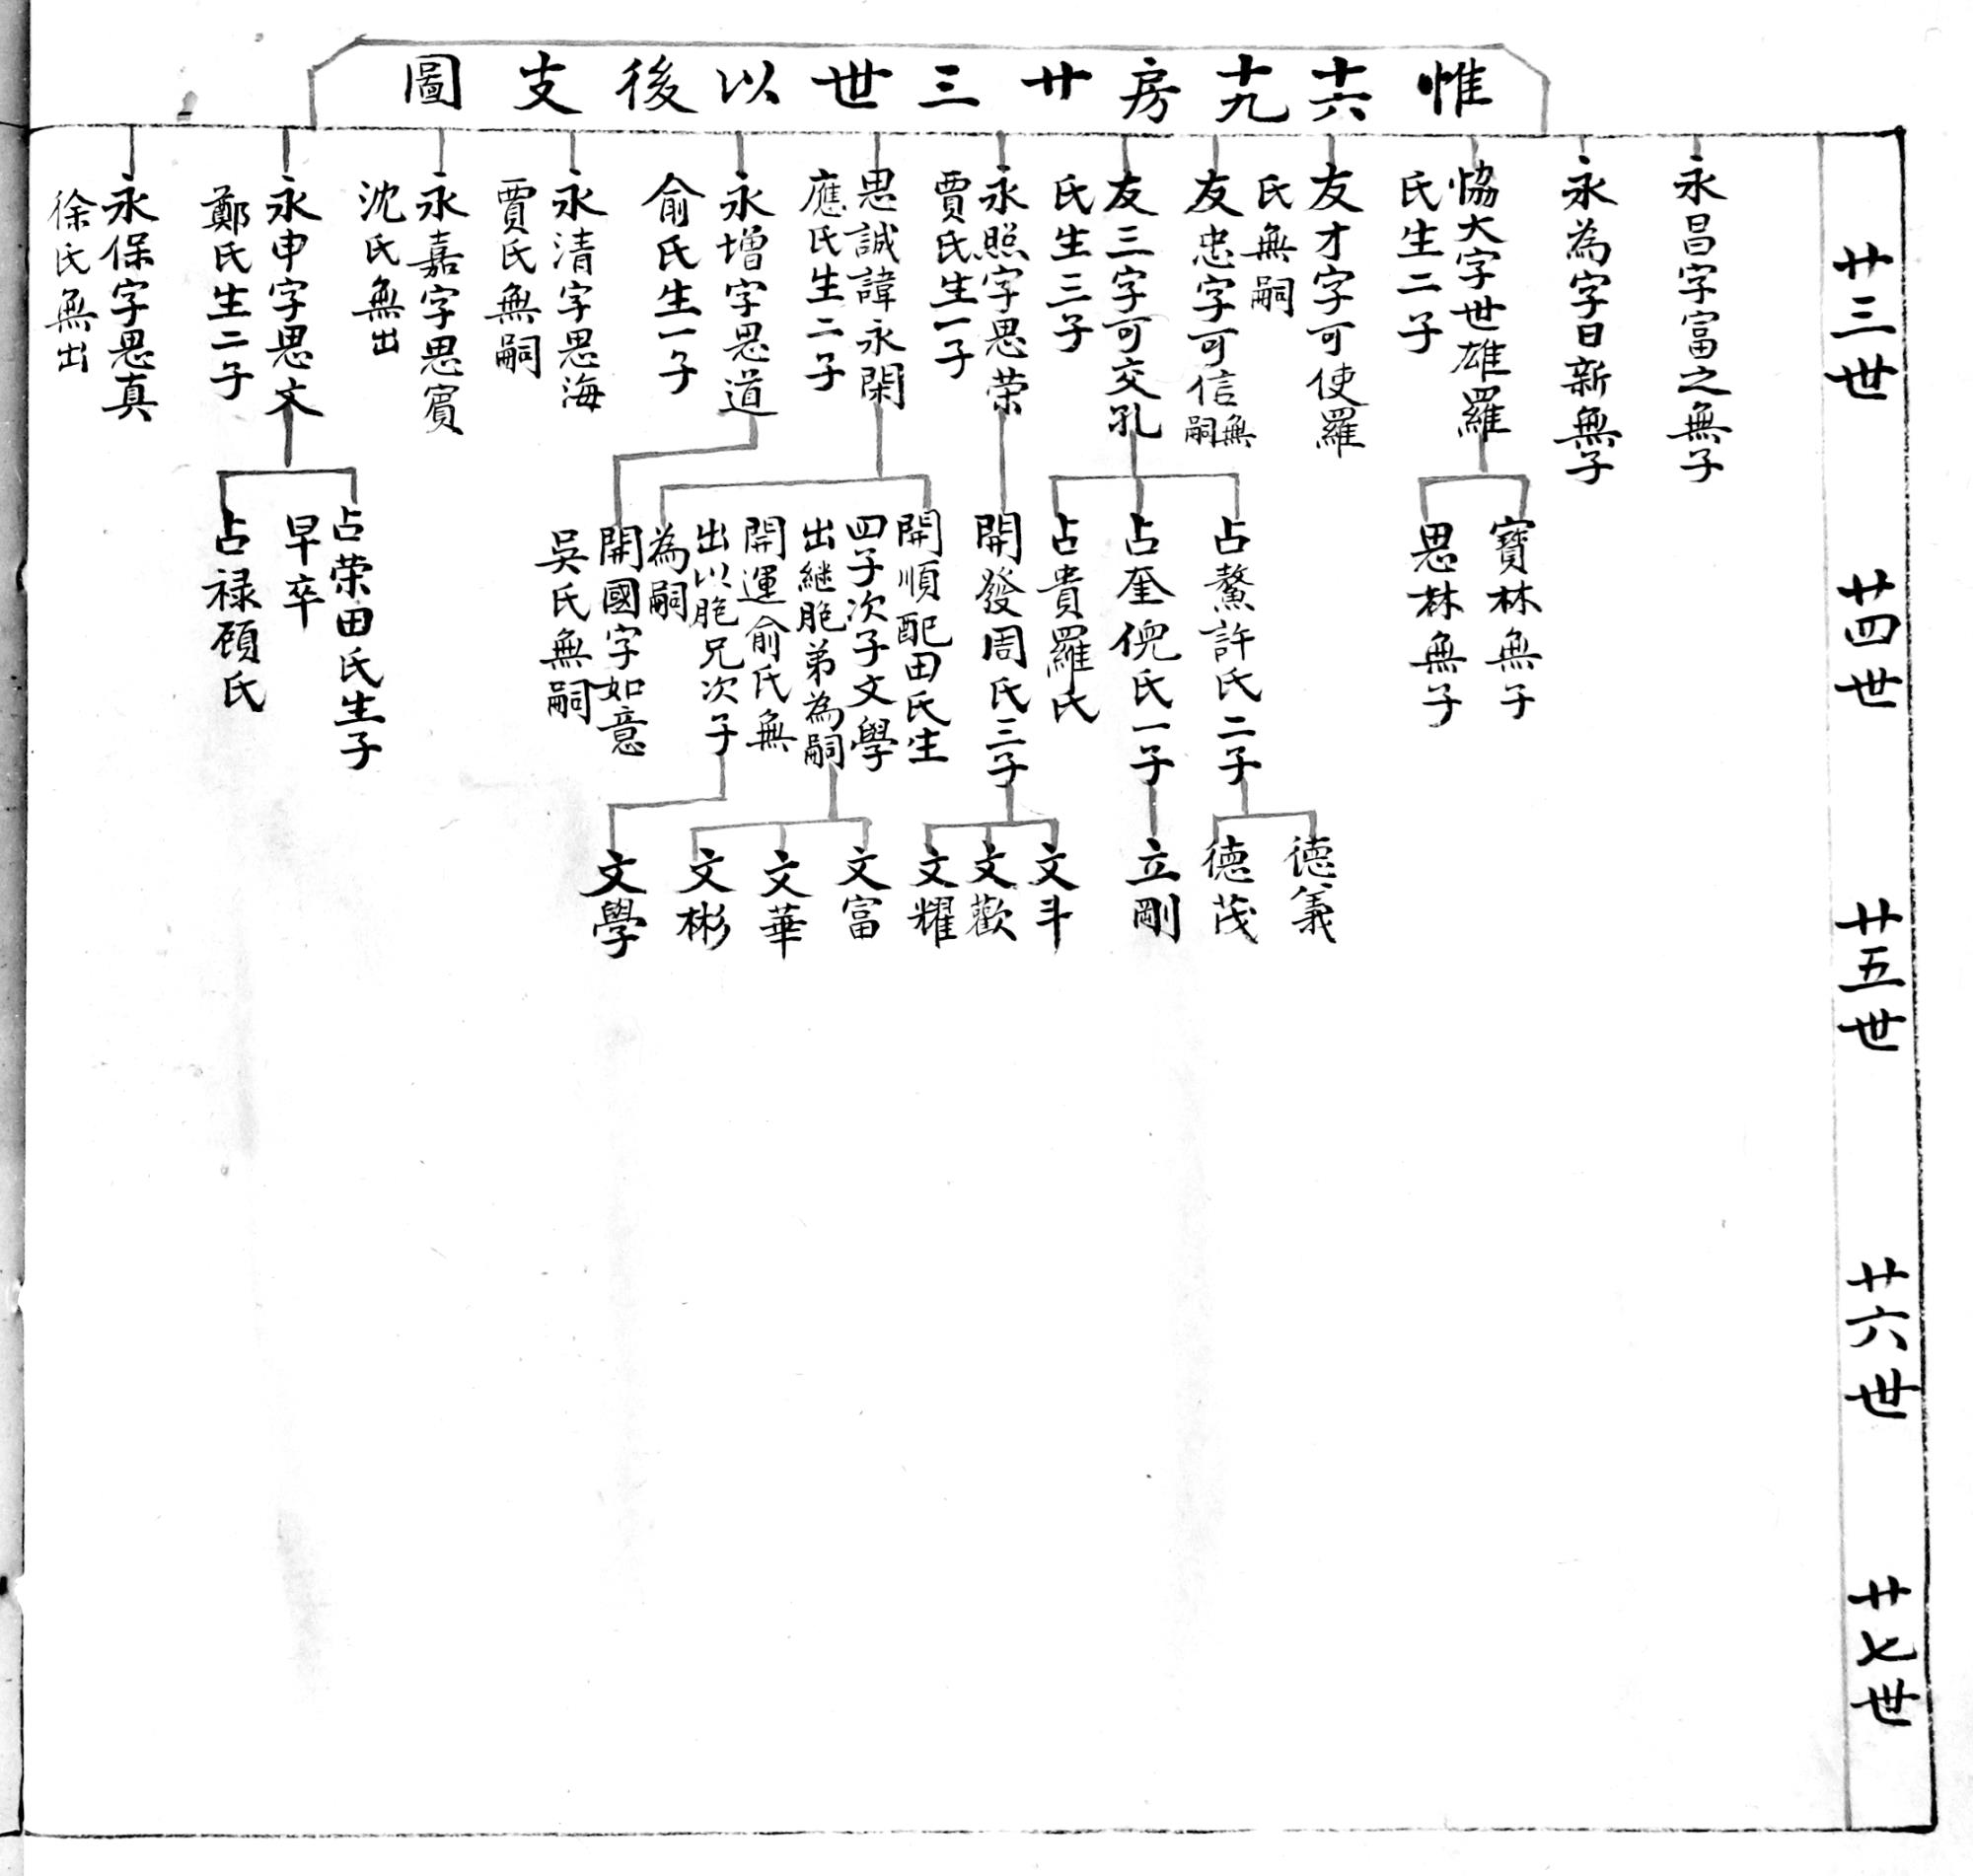 惟十六十九房廿三世以後支圖
廿三世
廿四世
廿五世
廿六世
廿七世
永昌字富之無子
永為字日新無子
協大字世雄羅
氏生二子
友才字可使羅
氏無嗣
友忠字可信無嗣
友三字可交孔
氏生三子
永照字思荣
賈氏生一子
思誠諱永閑
應氏生二子
永增字思道
俞氏生一子
永清字思海
賈氏無嗣
永嘉字思賓
沈氏無出
永申字思文
鄭氏生二子
永保字思真
徐氏無出
寶林無子
思林無子
占鰲許氏二子
占奎倪氏一子
占貴羅氏
開發周氏三子
開順配田氏生
四子次子文學
出継胞弟為嗣
開運俞氏無
出以胞兄次子
為嗣
開國字如意
吳氏無嗣
占荣田氏生子
早卒
占禄顾氏
德義
德茂
立剛
文斗
文歡
文耀
文富
文華
文彬
文學